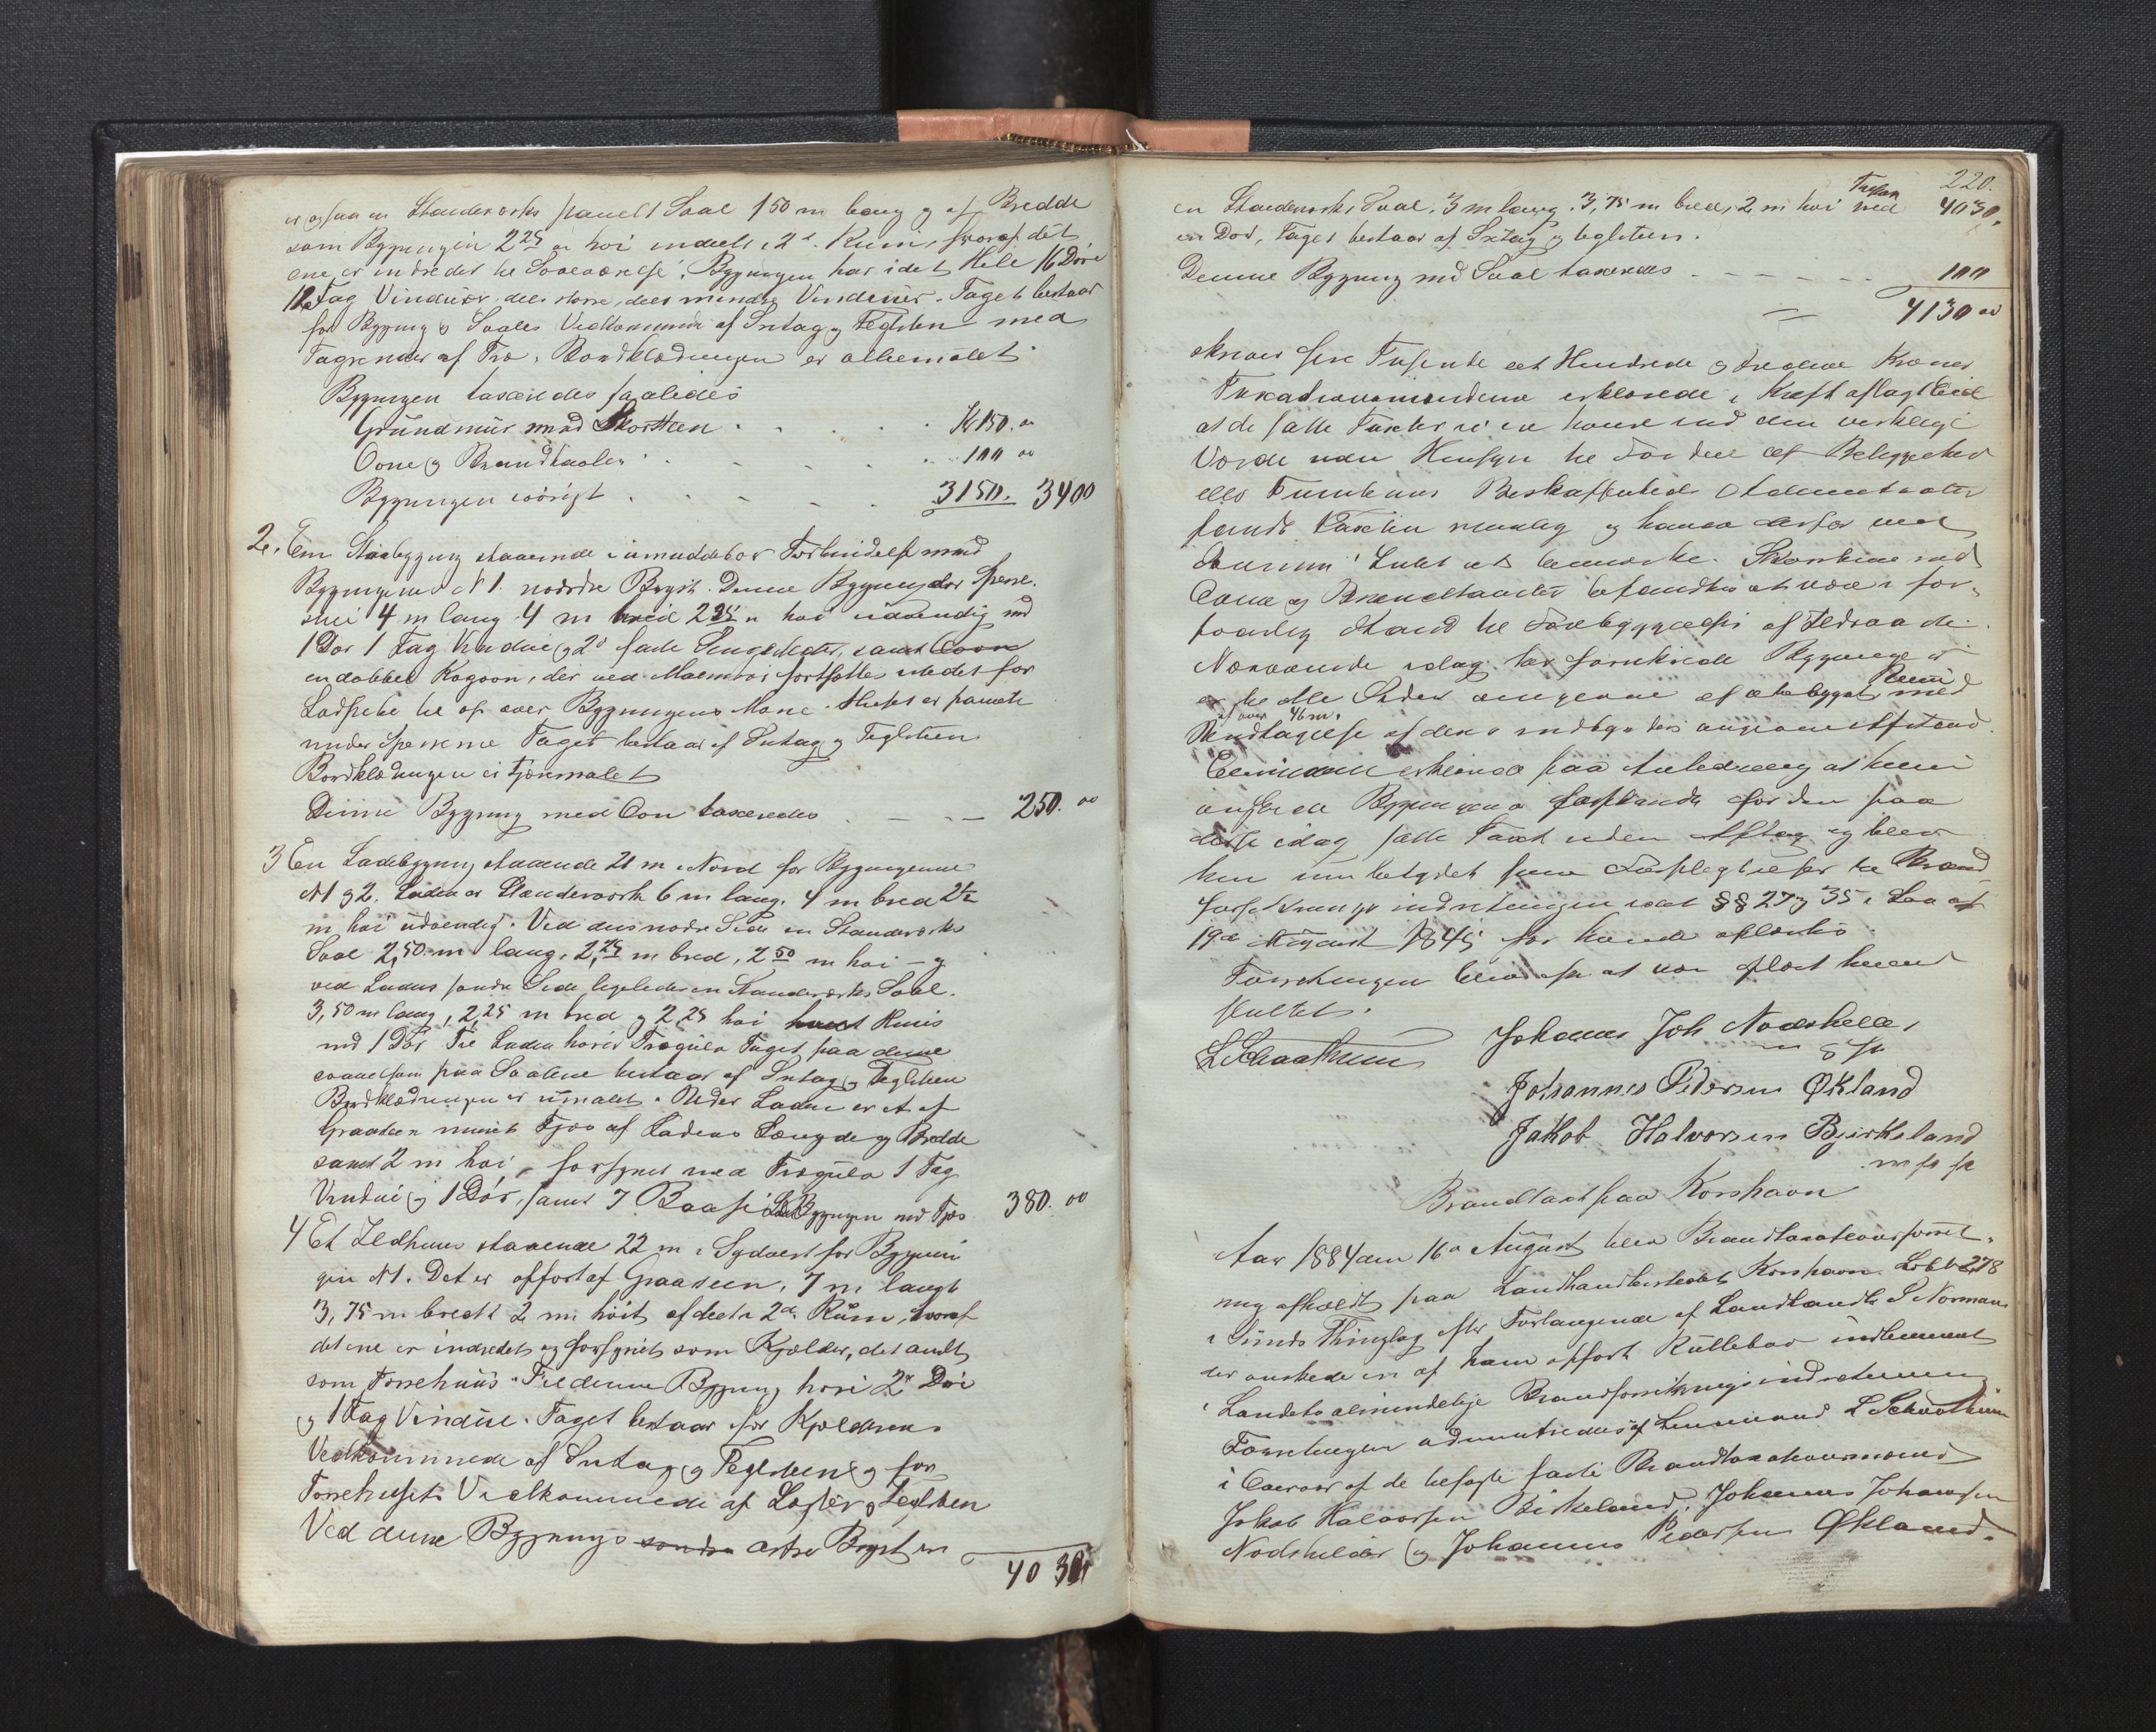 er ogsaa en Standerverks panelt Sval 1 50 m lang og af Bredde
som Bygningen 2 25 m høi indeelt i 2de Rum, hvoraf det
ene er indredet til Soveværelse. Bygningen har i det Hele 16 Døre
12 Fag Vinduer, deels større, deels mindre Vinduer. Taget bestaar
for Bygning og Svales Vedkommende af Sutag og Teglsten med
Tagrender af Træ. Bordklædningen er oliemalet.
Bygningen taxeredes saaledes
Grundmuur med Skorsten Kr 150. 00
Oone og Brandtavler 100 00
Bygningen iøvrigt 3150. 3400
2. Em Stuebygning staaende i umiddelbar Forbindelse med
Bygningens N 1. nordre Bryst. Denne Bygning der Sperre-
stue 4 m lang 4 m breid 2 25 m høi udvendig med
1 Dør 1 Fag Vindue og 2de faste Sengesteder, samt Ooone
en dobbel Kogoon, der ved Malmrør fortsættes istedet for
Ladpibe til op over Bygningens Møne. Huset er panelt
under Sperrene Taget bestaar af Sutag og Teglsteen
Bordklædningen er tjæremalet
Denne Bygning med Oon taxeredes 250. 00
3 En Ladebygning staaende 21 m i Nord for Bygningerne
N 1 og 2. Laden er Standerverk 6 m lang, 4 m bred 2½
m høi udvendig. Ved dens nordre Side en Standerverks
Sval 2,50 m lang, 2,25 m bred, 2 50 m høi – og
ved Ladens søndre Side ligeledes en Standerverks Sval.
3,50 m lang, 2,25 m bred og 2,25 høi
med 1 Dør Til Laden hører Trægulv Taget paa denne
saavelsom paa Svalene bestaar af Sutag og Teglsteen
Bordklædningen er umalet. Under Laden er et af
Graasteen muret Fjøs af Ladens Længde og Bredde
samt 2 m høi, forsynet med Trægulv 1 Fag
Vindue og 1 Dør, samt 7 Baase Bygningen med Fjøs 380. 00
4 Et Ildhuus staaende 22 m i Sydvest for Bygnin
gen N 1. Det er opført af Graasteen, 7 m langt
3,75 m bredt 2 m høit afdeelt i 2de Rum, hvoraf
det ene er indredet og forsynet som Kjælder, det andet
som Tørrehuus. Til denne Bygning hører 2de Døre
og 1 Fag Vindue. Taget bestaar for Kjælderens
Vedkommende af Sutag og Teglsteen og for
Tørrehusets Vedkommende af Lægter og Teglsteen
Ved denne Bygnings søndre østre Bryst er
40 30
220.
en Standerverks Sval, 3 m lang, 3,75 m bred, 2 m høi med 4030.
en Dør, Taget bestaar af Sutag og teglsteen.
Denne Bygning med Sval taxeredes 100
4130 00
skriver fire Tusende eet Hundrede og tredive Kroner
Taxationsmændene erklærede i Kraft aflagt Eed
at de satte Taxter ei er høiere end den verkelige
Værdi uden Hensyn til Fordeel af Beliggenhed
eller Tomternes Beskaffenhed. Administrator
fandt Taxten rimelig og havde derfor ved
samme Intet at bemærke. Skorstene med
Oone og Brandtavler befandtes at være i for-
svarlig Stand til Forebyggelse af Ildsvaade.
Nærværende idag besigtigede Bygninger
er til alle Sider omgivne af ubebygget Rum
af over 46 m. med
Undtagelse af den indbyrdes angivne Afstand
Eieren erklærede paa Anledning at han
ønskede Bygningerne forsikrede for den paa
dette idag satte Taxt uden Aftag og blev
han imidlertid sine Forpligtelser til Brand-
forsikringsindretningen ifølge §§ 27 og 35 i Lov af
19de August 1845 for ham oplæste.
Forretningen blev efter at være oplæst hermed
sluttet.
L Schaathuun Johannes Joh Nodskeller
m p p
Johannes Pedersen Økland
Jakob Halvorsen Bjørkeland
m p p
Brandtaxt paa Korshavn
Aar 1884 den 16de August blev Brandtaxationsforret-
ning afholdt paa Landhandlerstedet Korshavn Lb N 278
i Sunds Thinglag efter Forlangende af Landhandler P Normann
der ønskede en af ham opført Rullebod indlemmet
i Landets almindelige Brandforsikringsindretning
Forretningen administreredes af Lensmand L Schaathuun
i Overvær af de befaste faste Brandtaxationsmænd
Jakob Halvorsen Birkeland, Johannes Johannesen
Nodskelder og Johannes Pedersen Økland.